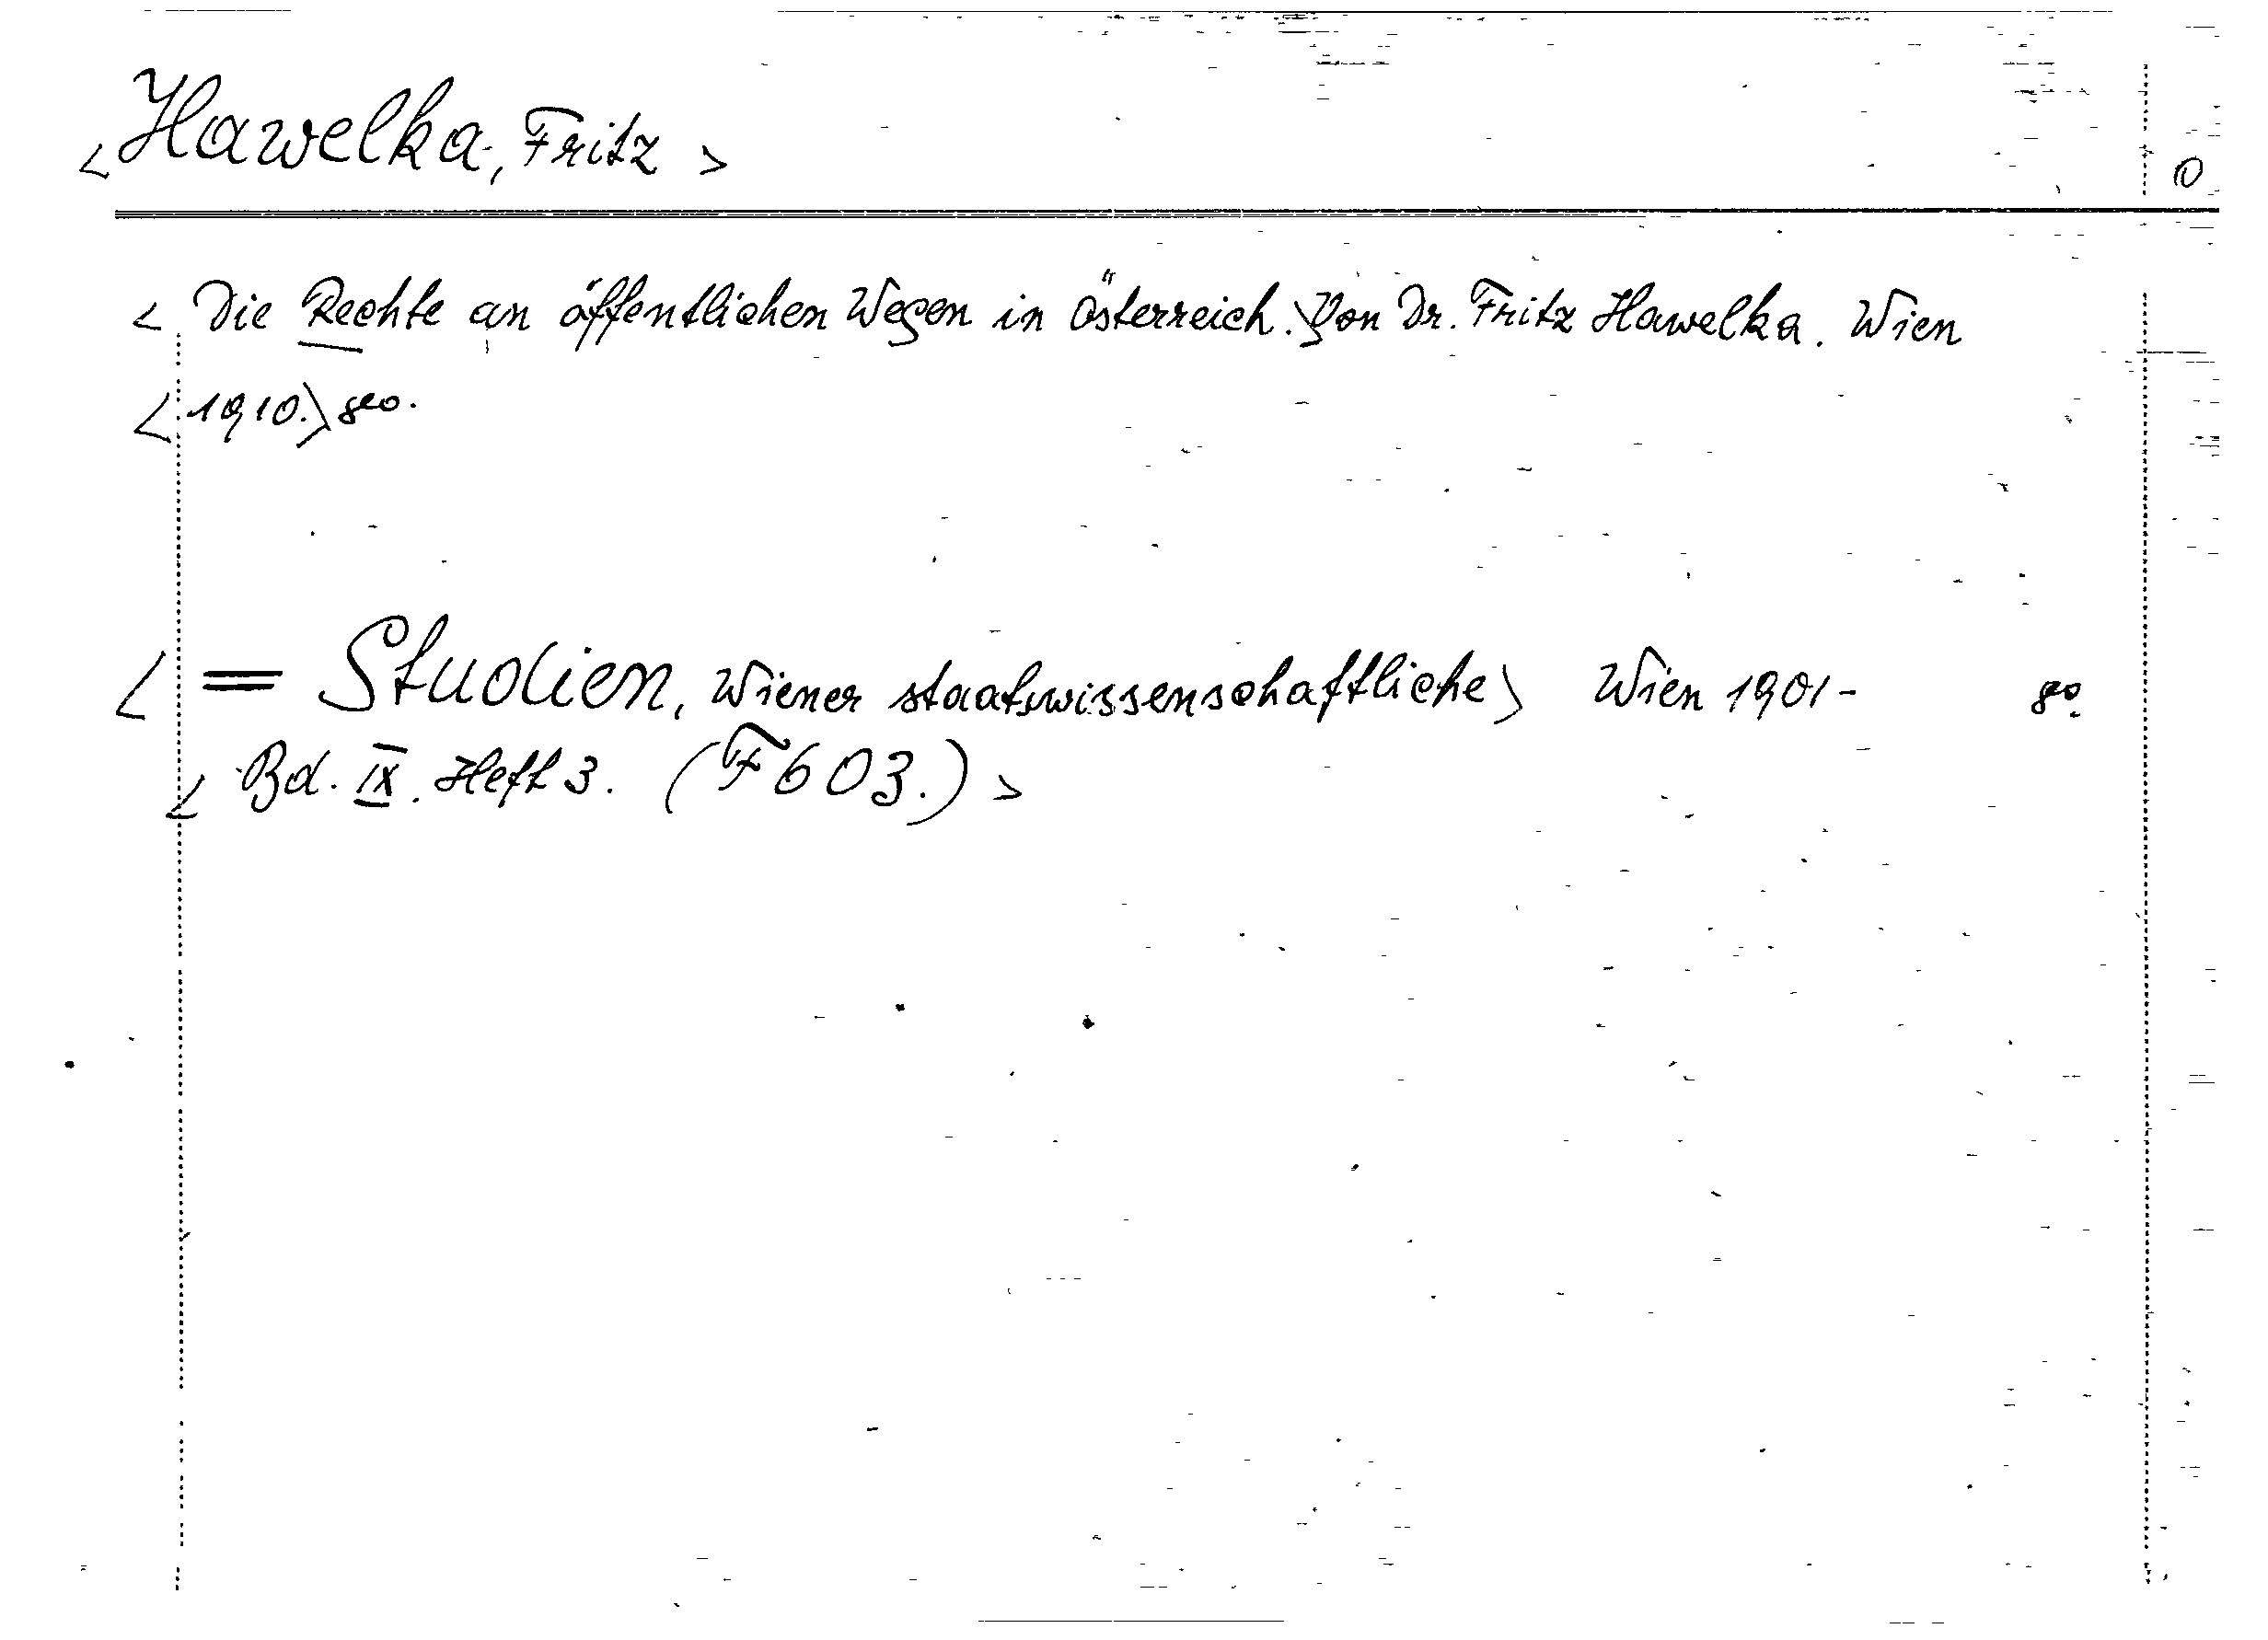 <Hawelka, Fritz> 0
< Die Rechte an öffentlichen Wegen in Österreich.> Von Dr. Fritz Hawelka. Wien
<1910.> 8°.
< = Studien, Wiener staatswissenschaftliche> Wien 1901- 8°.
< Bd. IX. Heft 3. (F 603.) >